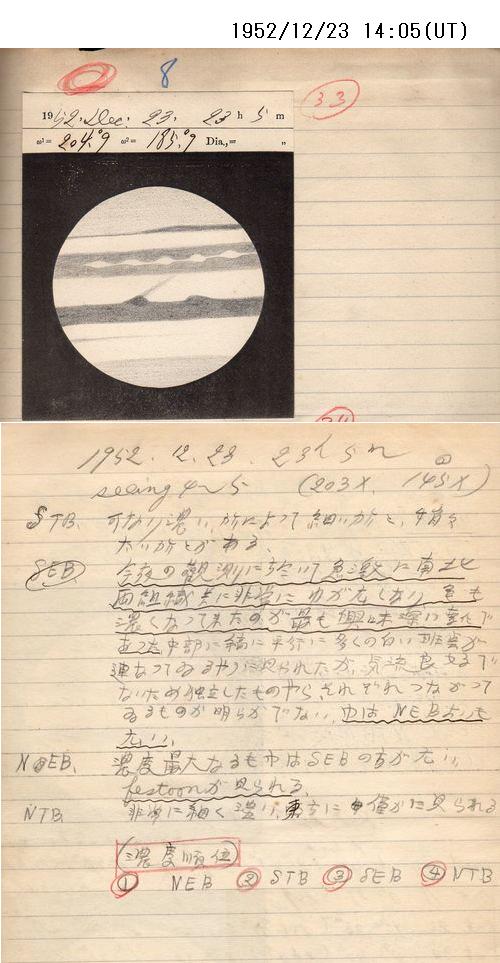 1952/12/23 14:05(UT)
8
33
1952. Dec. 23. 23 h 5 m
ω¹= 204.°9 ω²= 185.°9 Dia.,= "
1952. 12. 23. 23h 5m
seeing 4~5 (203X, 145X)
STB. 可なり濃い, 所によって細い所と、
太い所とがある、
SEB 今夜の観測に於いて急激に南北
両組織共に非常に巾が広くなり 色も
濃くなって来たのが最も興味深い
中部に縞に平行に多くの白い
連なってゐるやうに見られたが, 気流良好で
ないため独立したものやら それぞれつながって
ゐるものか明らかでない, 巾は NEBよりも
広い,
NEB. 濃度最大なるも巾はSEBの方が広い,
festoonが見られる,
NTB 非常に細く濃い, 僅かに見られる
(濃度順位)
① NEB ② STB ③ SEB ④ NTB